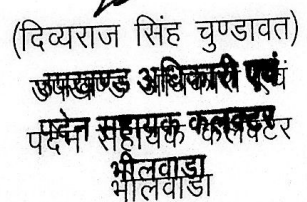 (दिव्यराज सिंह चुण्डावत)
उपखण्ड अधिकारी एवं
पदेन सहायक कलक्टर
भीलवाडा